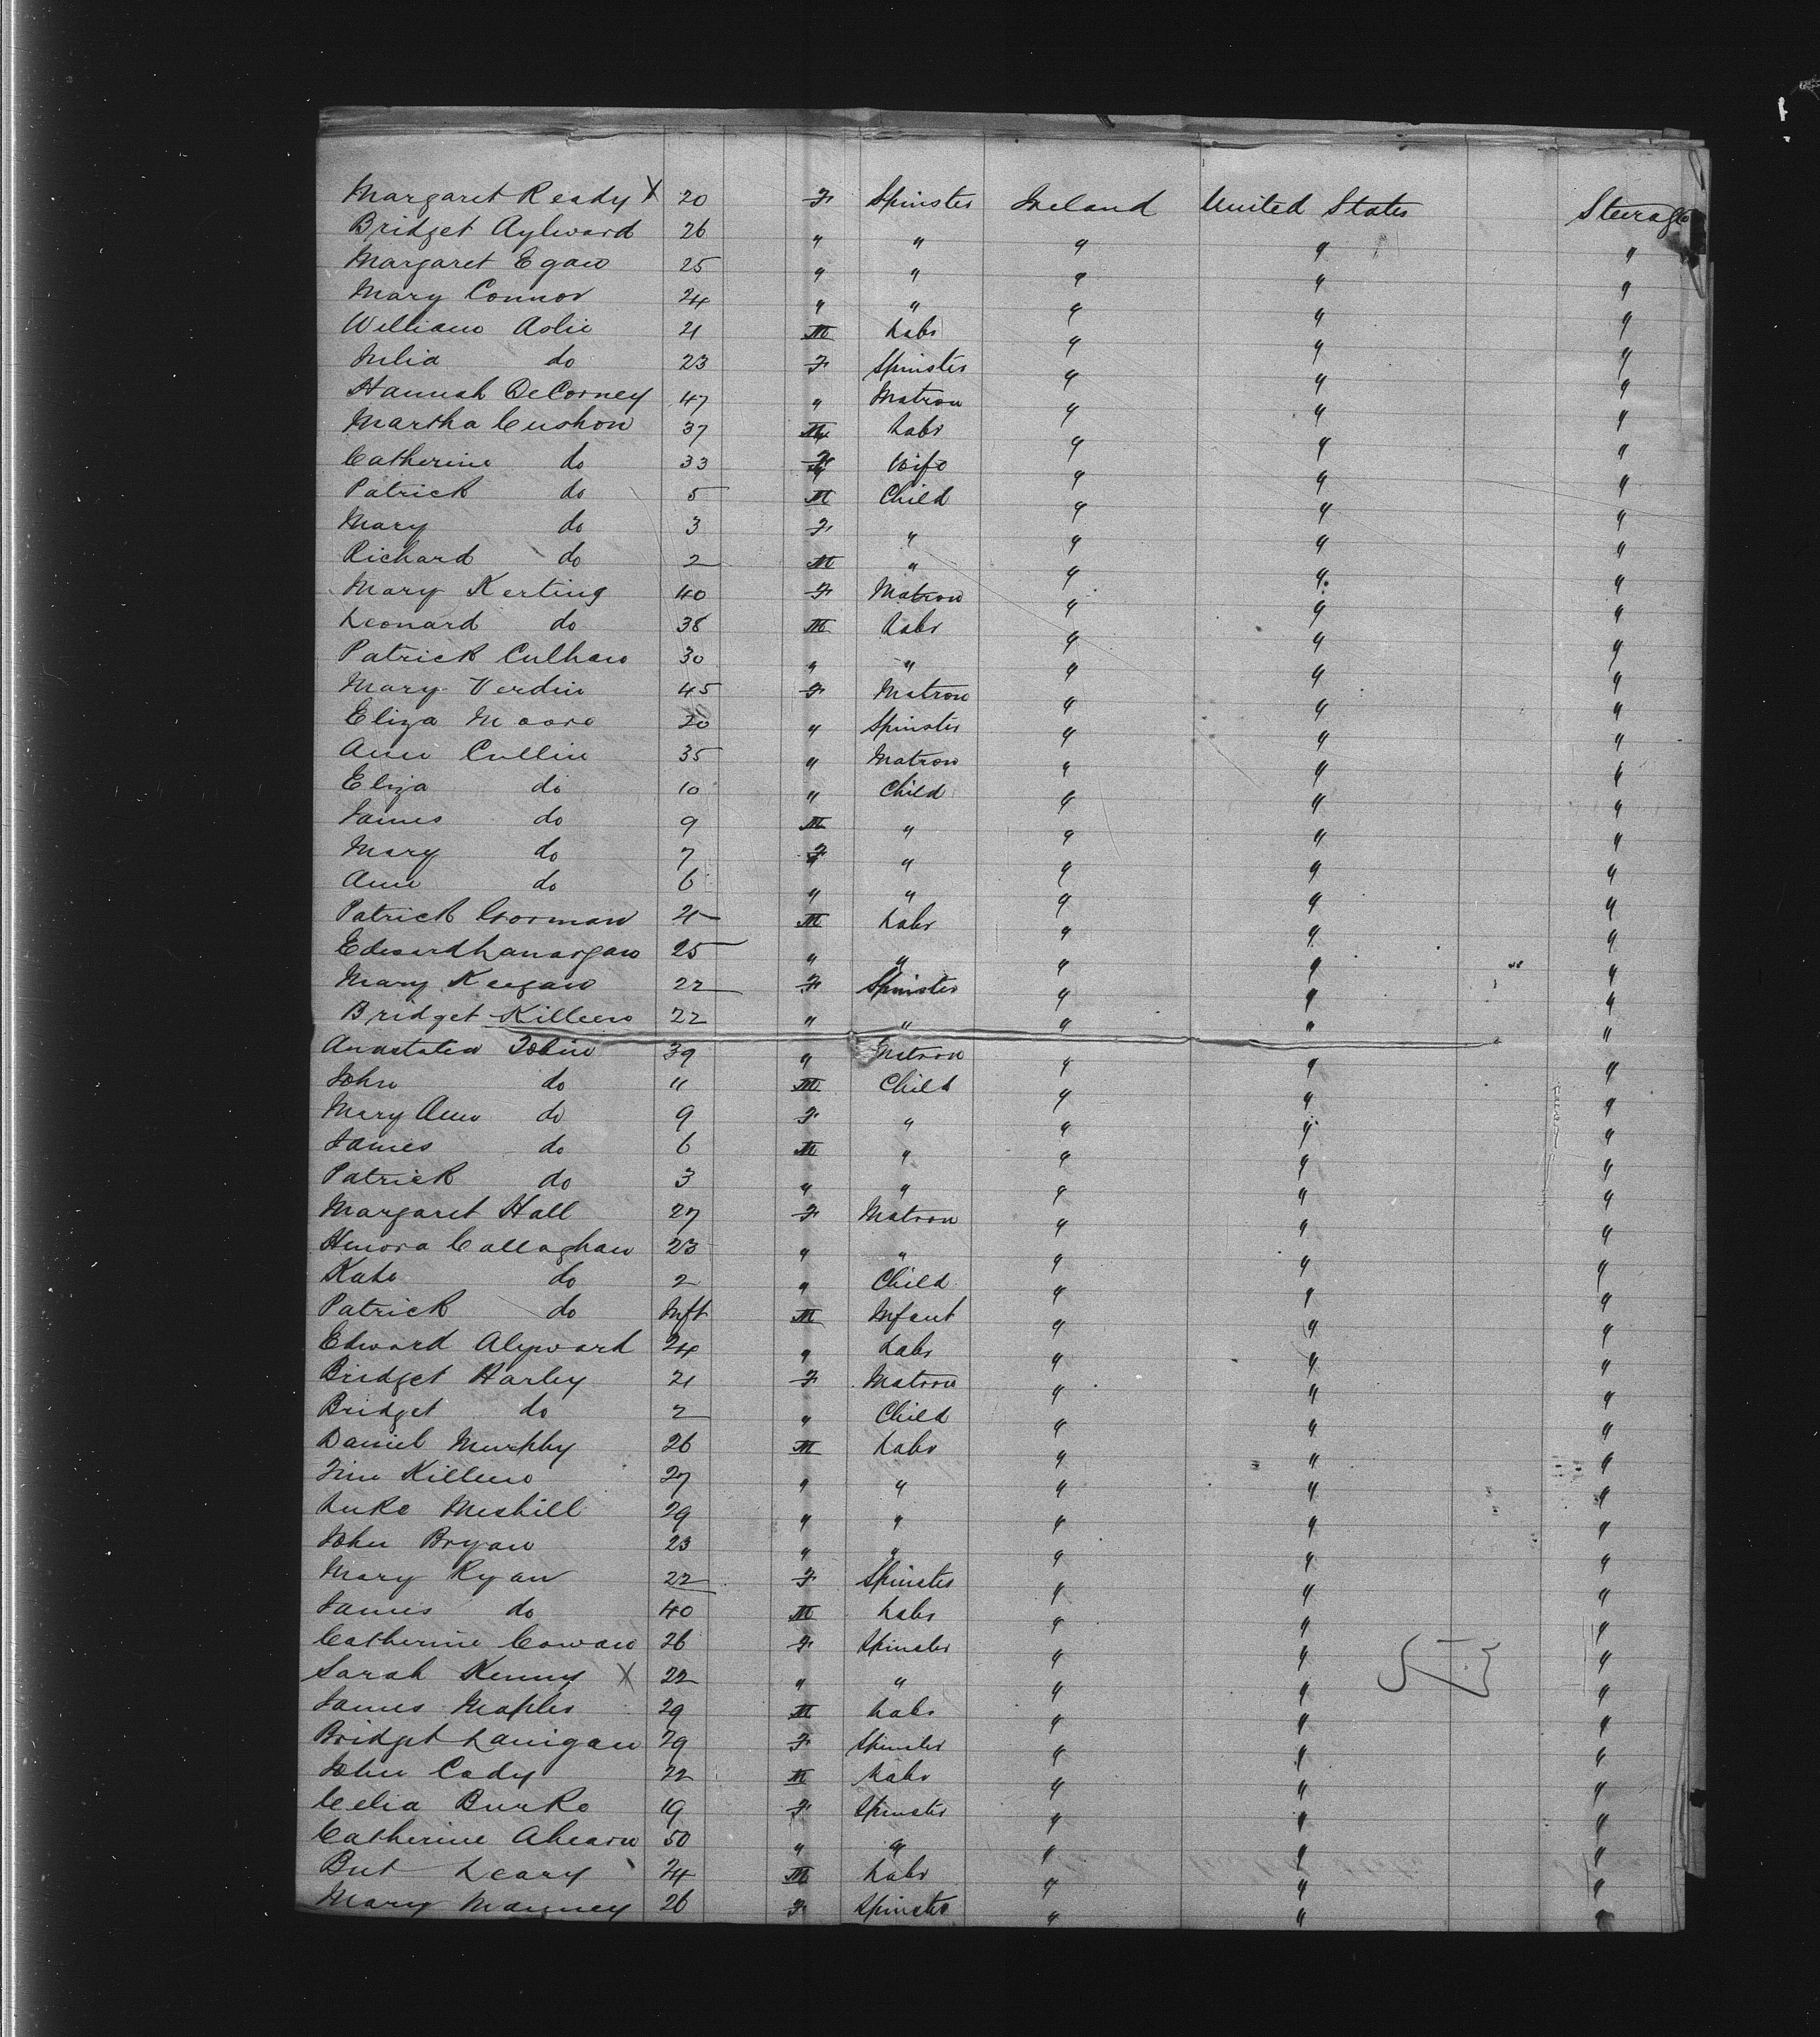 Margaret Ready X 20 F Spinster Ireland United States Steerage
Bridget Aylward 26 " " " " "
Margaret Egan 25 " " " " "
Mary Connor 24 " " " " "
William Aslie 21 M Labr " " "
Julia do 23 F Spinster " " "
Hannah DeCorney 47 " Matron " " "
Martha Cushon 37 M Labr " " "
Catherine do 33 F Wife " " "
Patrick do 5 M Child " " "
Mary do 3 F " " " "
Richard do 2 M " " " "
Mary Kerting 40 F Matron " " "
Leonard do 38 M Labr " " "
Patrick Culhan 30 " " " " "
Mary Verdin 45 F Matron " " "
Eliza Moore 20 " Spinster " " "
Ann Cullin 35 " Matron " " "
Eliza do 10 " Child " " "
James do 9 M " " " "
Mary do 7 F " " " "
Ann do 6 " " " " "
Patrick Gorman 21 M Labr " " "
Edward Lanargan 25 " " " " "
Mary Keegan 22 F Spinster " " "
Bridget Killeen 22 " " " " "
Anastatia Tobin 39 " Matron " " "
John do 11 M Child " " "
Mary Ann do 9 F " " " "
James do 6 M " " " "
Patrick do 3 " " " " "
Margaret Hall 27 F Matron " " "
Henora Callaghan 23 " " " " "
Kate do 2 " Child " " "
Patrick do Inft M Infant " " "
Edward Alyward 24 " Labr " " "
Bridget Harley 21 F Matron " " "
Bridget do 2 " Child " " "
Daniel Murphy 26 M Labr " " "
Tim Killeen 27 " " " " "
Luke Meshill 29 " " " " "
John Bryan 23 " " " " "
Mary Ryan 22 F Spinster " " "
James do 40 M Labr " " "
Catherine Cowan 26 F Spinster " " "
Sarah Kenny X 22 " " " " "
James Maples 29 M Labr " " "
Bridget Lanigan 29 F Spinster " " "
John Cady 22 M Labr " " "
Celia Burke 19 F Spinster " " "
Catherine Ahearn 50 " " " " "
But Leary 24 M Labr " " "
Mary Manney 26 F Spinster " " "